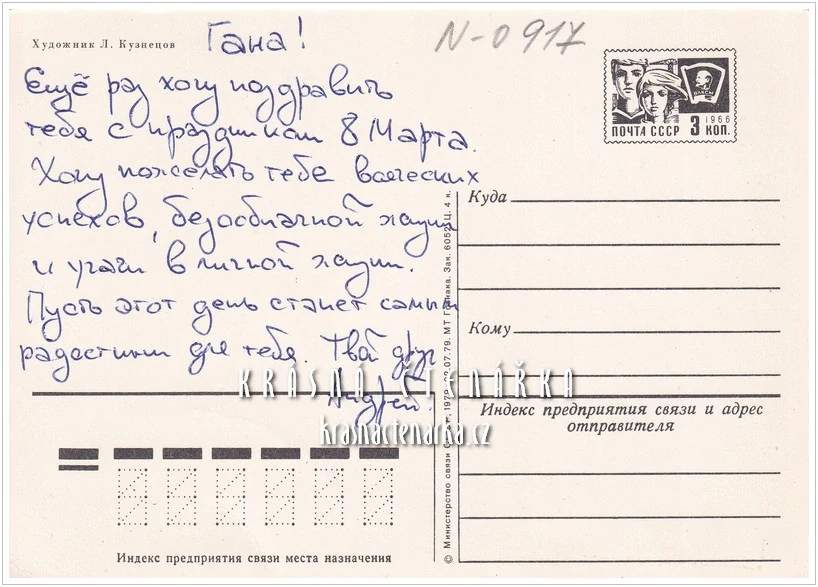 Художник Л. Кузнецов
Гана!
N-0917
Ещё раз хочу поздравить
тебя с праздником 8 Марта.
Хочу пожелать тебе всяческих
успехов, безоблачной жизни
и удачи в личной жизни.
Пусть этот день станет самым
радостным для тебя. Твой друг
Андрей.
ПОЧТА СССР 3 КОП.
1966
ВЛКСМ
Куда
Кому
Индекс предприятия связи и адрес
отправителя
KRÁSNÁ ČTENÁŘKA
krasnactenarka.cz
Индекс предприятия связи места назначения
© Министерство связи 07.79. МТ Гознака. Зак. 6052. Ц. 4 к.